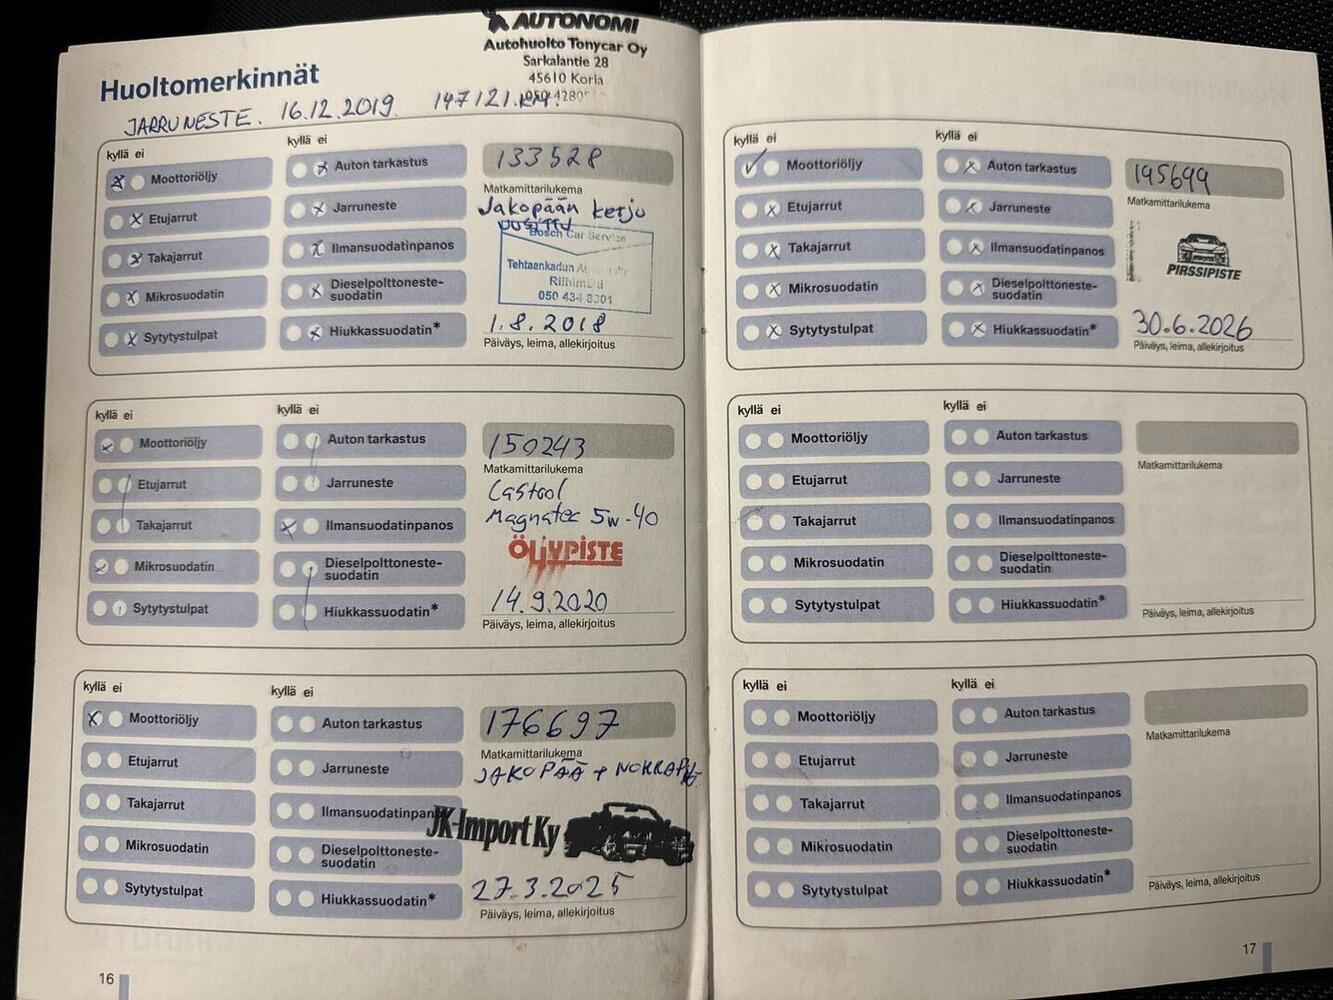 AUTONOMI
Autohuolto Tonycar Oy
Sarkalantie 28
45610 Koria
Huoltomerkinnät
JARRUNESTE. 16.12.2019 147121.KM.
kyllä ei
Moottoriöljy
Etujarrut
Takajarrut
Mikrosuodatin
Sytytystulpat
kyllä ei
Auton tarkastus
Jarruneste
Ilmansuodatinpanos
Dieselpolttoneste-
suodatin
Hiukkassuodatin*
133528
Matkamittarilukema
Jakopään ketju
uusittu
Bosch Car Service
Tehtaankadun
050 434 8301
1.8.2018
Päiväys, leima, allekirjoitus
kyllä ei
Moottoriöljy
Etujarrut
Takajarrut
Mikrosuodatin
Sytytystulpat
kyllä ei
Auton tarkastus
Jarruneste
Ilmansuodatinpanos
Dieselpolttoneste-
suodatin
Hiukkassuodatin*
150243
Matkamittarilukema
Castrol
Magnatec 5w-40
ÖLJYPISTE
14.9.2020
Päiväys, leima, allekirjoitus
kyllä ei
Moottoriöljy
Etujarrut
Takajarrut
Mikrosuodatin
Sytytystulpat
kyllä ei
Auton tarkastus
Jarruneste
Ilmansuodatinpanos
Dieselpolttoneste-
suodatin
Hiukkassuodatin*
176697
Matkamittarilukema
JAKOPÄÄ +
JK-Import Ky
27.3.2025
Päiväys, leima, allekirjoitus
16
kyllä ei
Moottoriöljy
Etujarrut
Takajarrut
Mikrosuodatin
Sytytystulpat
kyllä ei
Auton tarkastus
Jarruneste
Ilmansuodatinpanos
Dieselpolttoneste-
suodatin
Hiukkassuodatin*
195699
Matkamittarilukema
PIRSSIPISTE
30.6.2026
Päiväys, leima, allekirjoitus
kyllä ei
Moottoriöljy
Etujarrut
Takajarrut
Mikrosuodatin
Sytytystulpat
kyllä ei
Auton tarkastus
Jarruneste
Ilmansuodatinpanos
Dieselpolttoneste-
suodatin
Hiukkassuodatin*
Matkamittarilukema
Päiväys, leima, allekirjoitus
kyllä ei
Moottoriöljy
Etujarrut
Takajarrut
Mikrosuodatin
Sytytystulpat
kyllä ei
Auton tarkastus
Jarruneste
Ilmansuodatinpanos
Dieselpolttoneste-
suodatin
Hiukkassuodatin*
Matkamittarilukema
Päiväys, leima, allekirjoitus
17